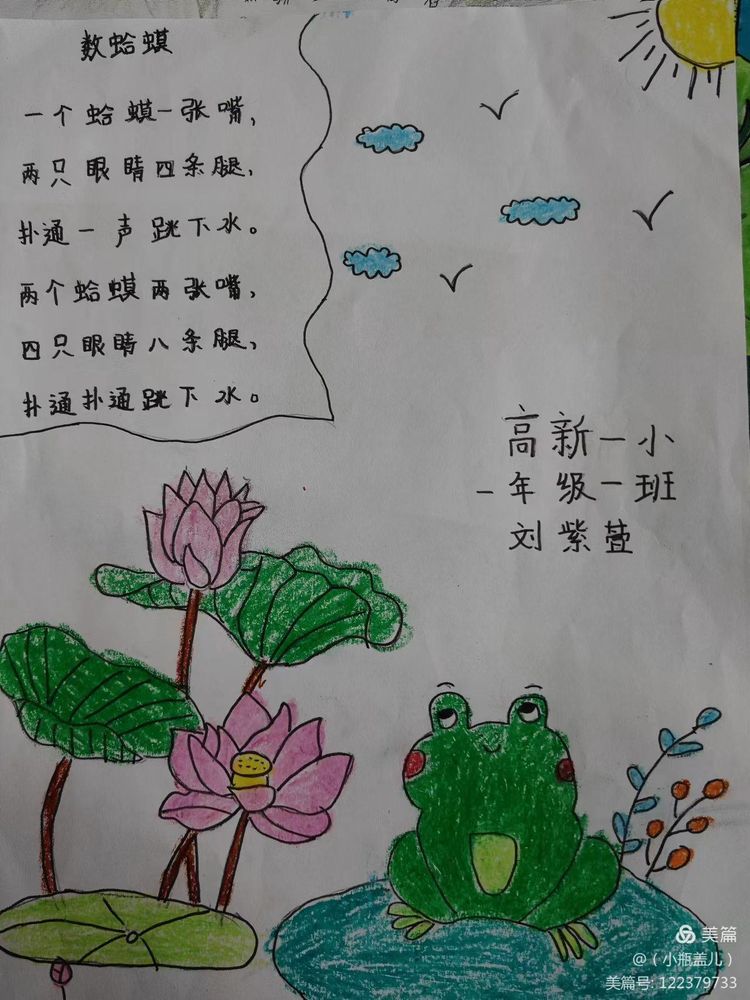 数蛤蟆
一个蛤蟆一张嘴，
两只眼睛四条腿，
扑通一声跳下水。
两个蛤蟆两张嘴，
四只眼睛八条腿，
扑通扑通跳下水。
高新一小
一年级一班
刘紫萱
美篇
@（小瓶盖儿）
美篇号: 122379733